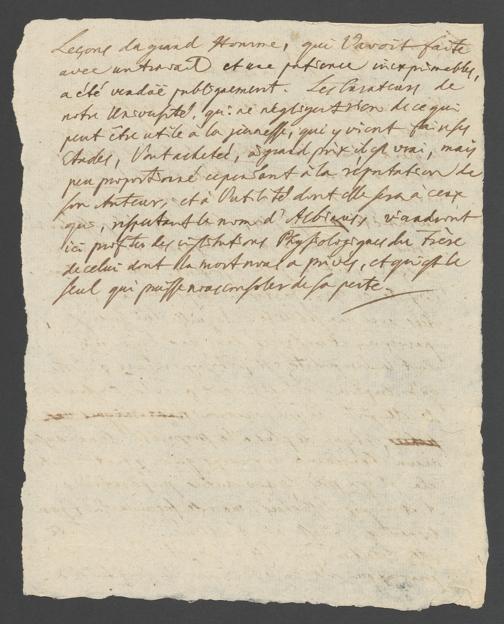 Leçons du grand Homme, qui l'avoit faite
avec un travail et une patience inexprimables,
a été vendue publiquement. Les Curateurs de
notre Université, qui ne négligent rien de ce qui
peut être utile à la jeunesse, qui y vient faire ses
études, l'ont acheteé, à grand prix il est vrai, mais
peu proportionné cependant à la réputation de
son Auteur, et à l'utilité dont elle sera à ceux
qui, respectant le nom d'Albinus, viendront
ici profiter des institutions Physiologiques du frère
de celui dont la mort nous a privés, et qui est le
seul qui puisse nous consoler de sa perte.